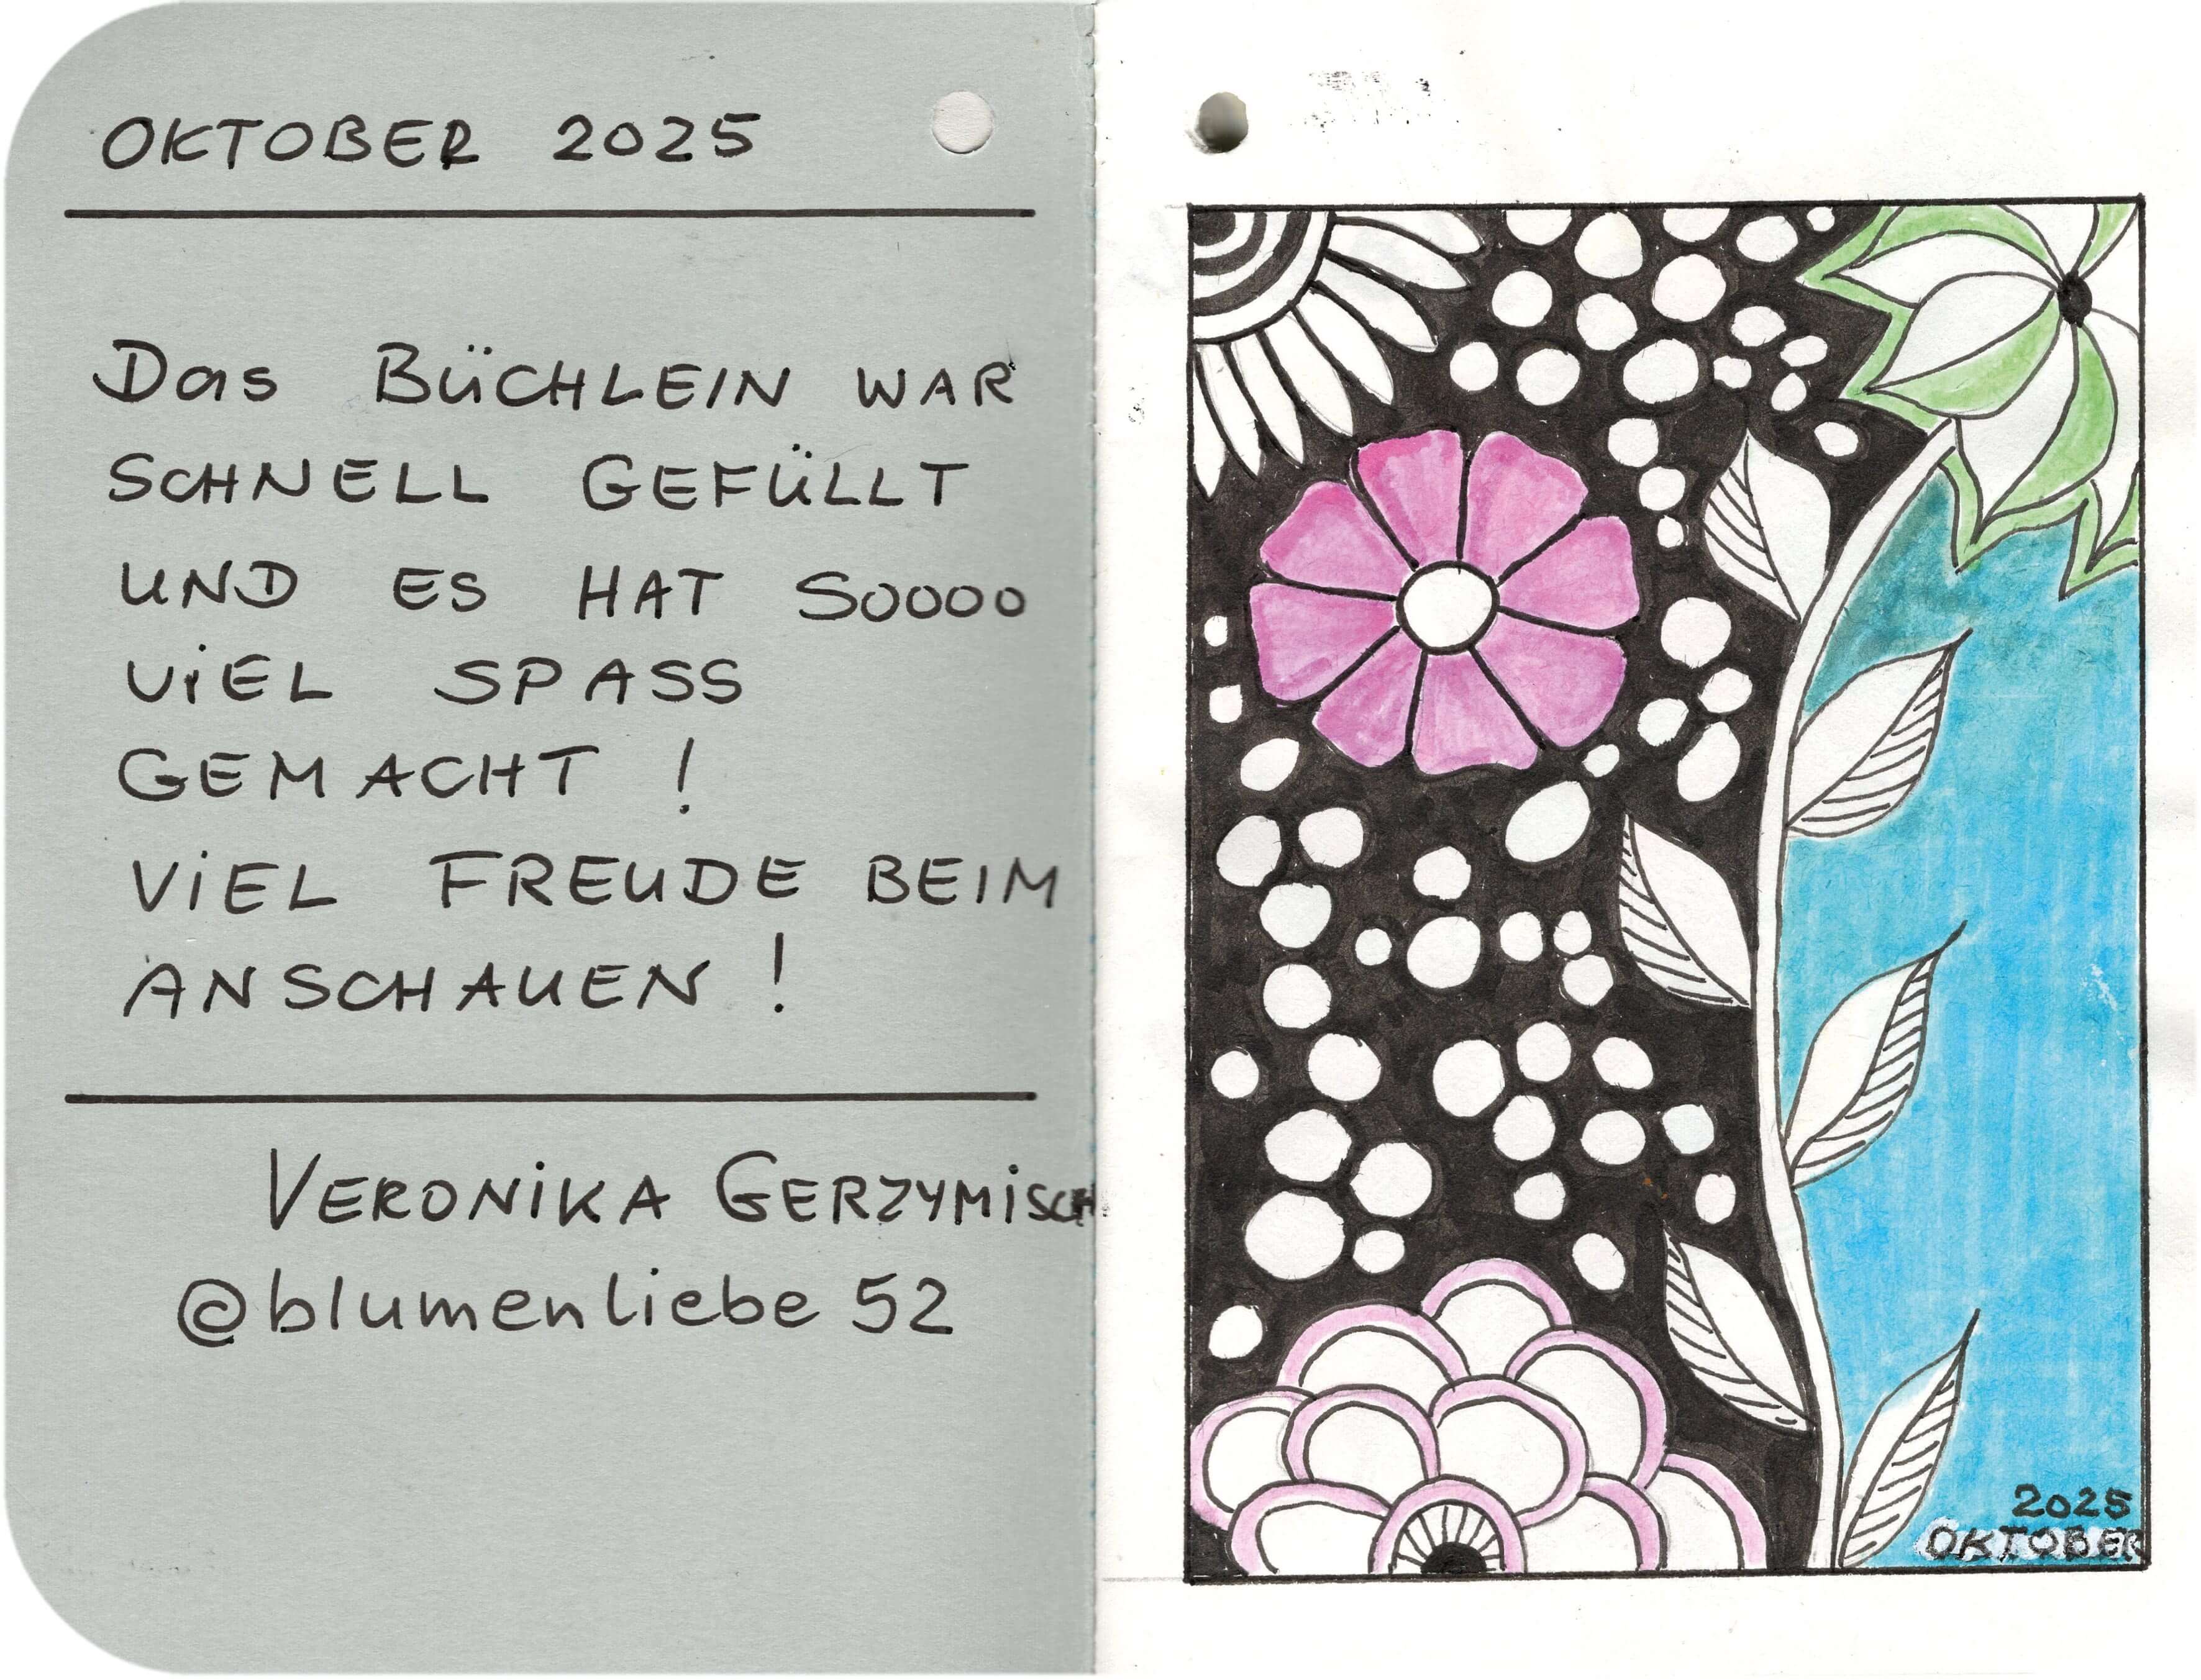 OKTOBER 2025
Das BÜCHLEIN WAR
SCHNELL GEFÜLLT
UND ES HAT SOOOO
ViEL SPASS
GEMACHT !
ViEL FREUDE BEIM
ANSCHAUEN !
VERONiKA GERZYMiSCH
@blumenliebe 52
2025
OKTOBER